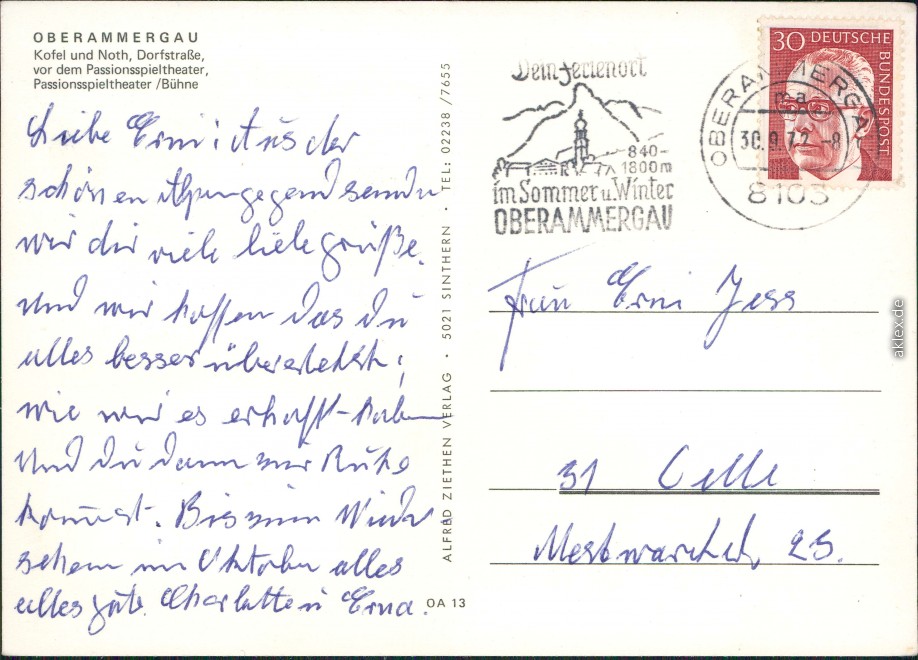 OBERAMMERGAU
Kofel und Noth, Dorfstraße,
vor dem Passionsspieltheater,
Passionsspieltheater / Bühne
Liebe Erni! Aus der
schönen Alpengegend senden
wir dir viele liebe grüße.
Und wir hoffen das du
alles besser überstehst,
wie wir es erhofft-haben
Und du dann zur Ruhe
kommst. Bis zum Wieder
sehem im Oktober alles
alles gute Charlotte u Erna.
OA 13
ALFRED ZIETHEN VERLAG · 5021 SINTHERN · TEL: 02238/7655
Dein Ferienort
840-
1800m
im Sommer u. Winter
OBERAMMERGAU
OBERAMMERGAU
ma
30.9.72-8
8103
30 DEUTSCHE
BUNDESPOST
Frau Erni Jess
31 Celle
29.
aklex.de